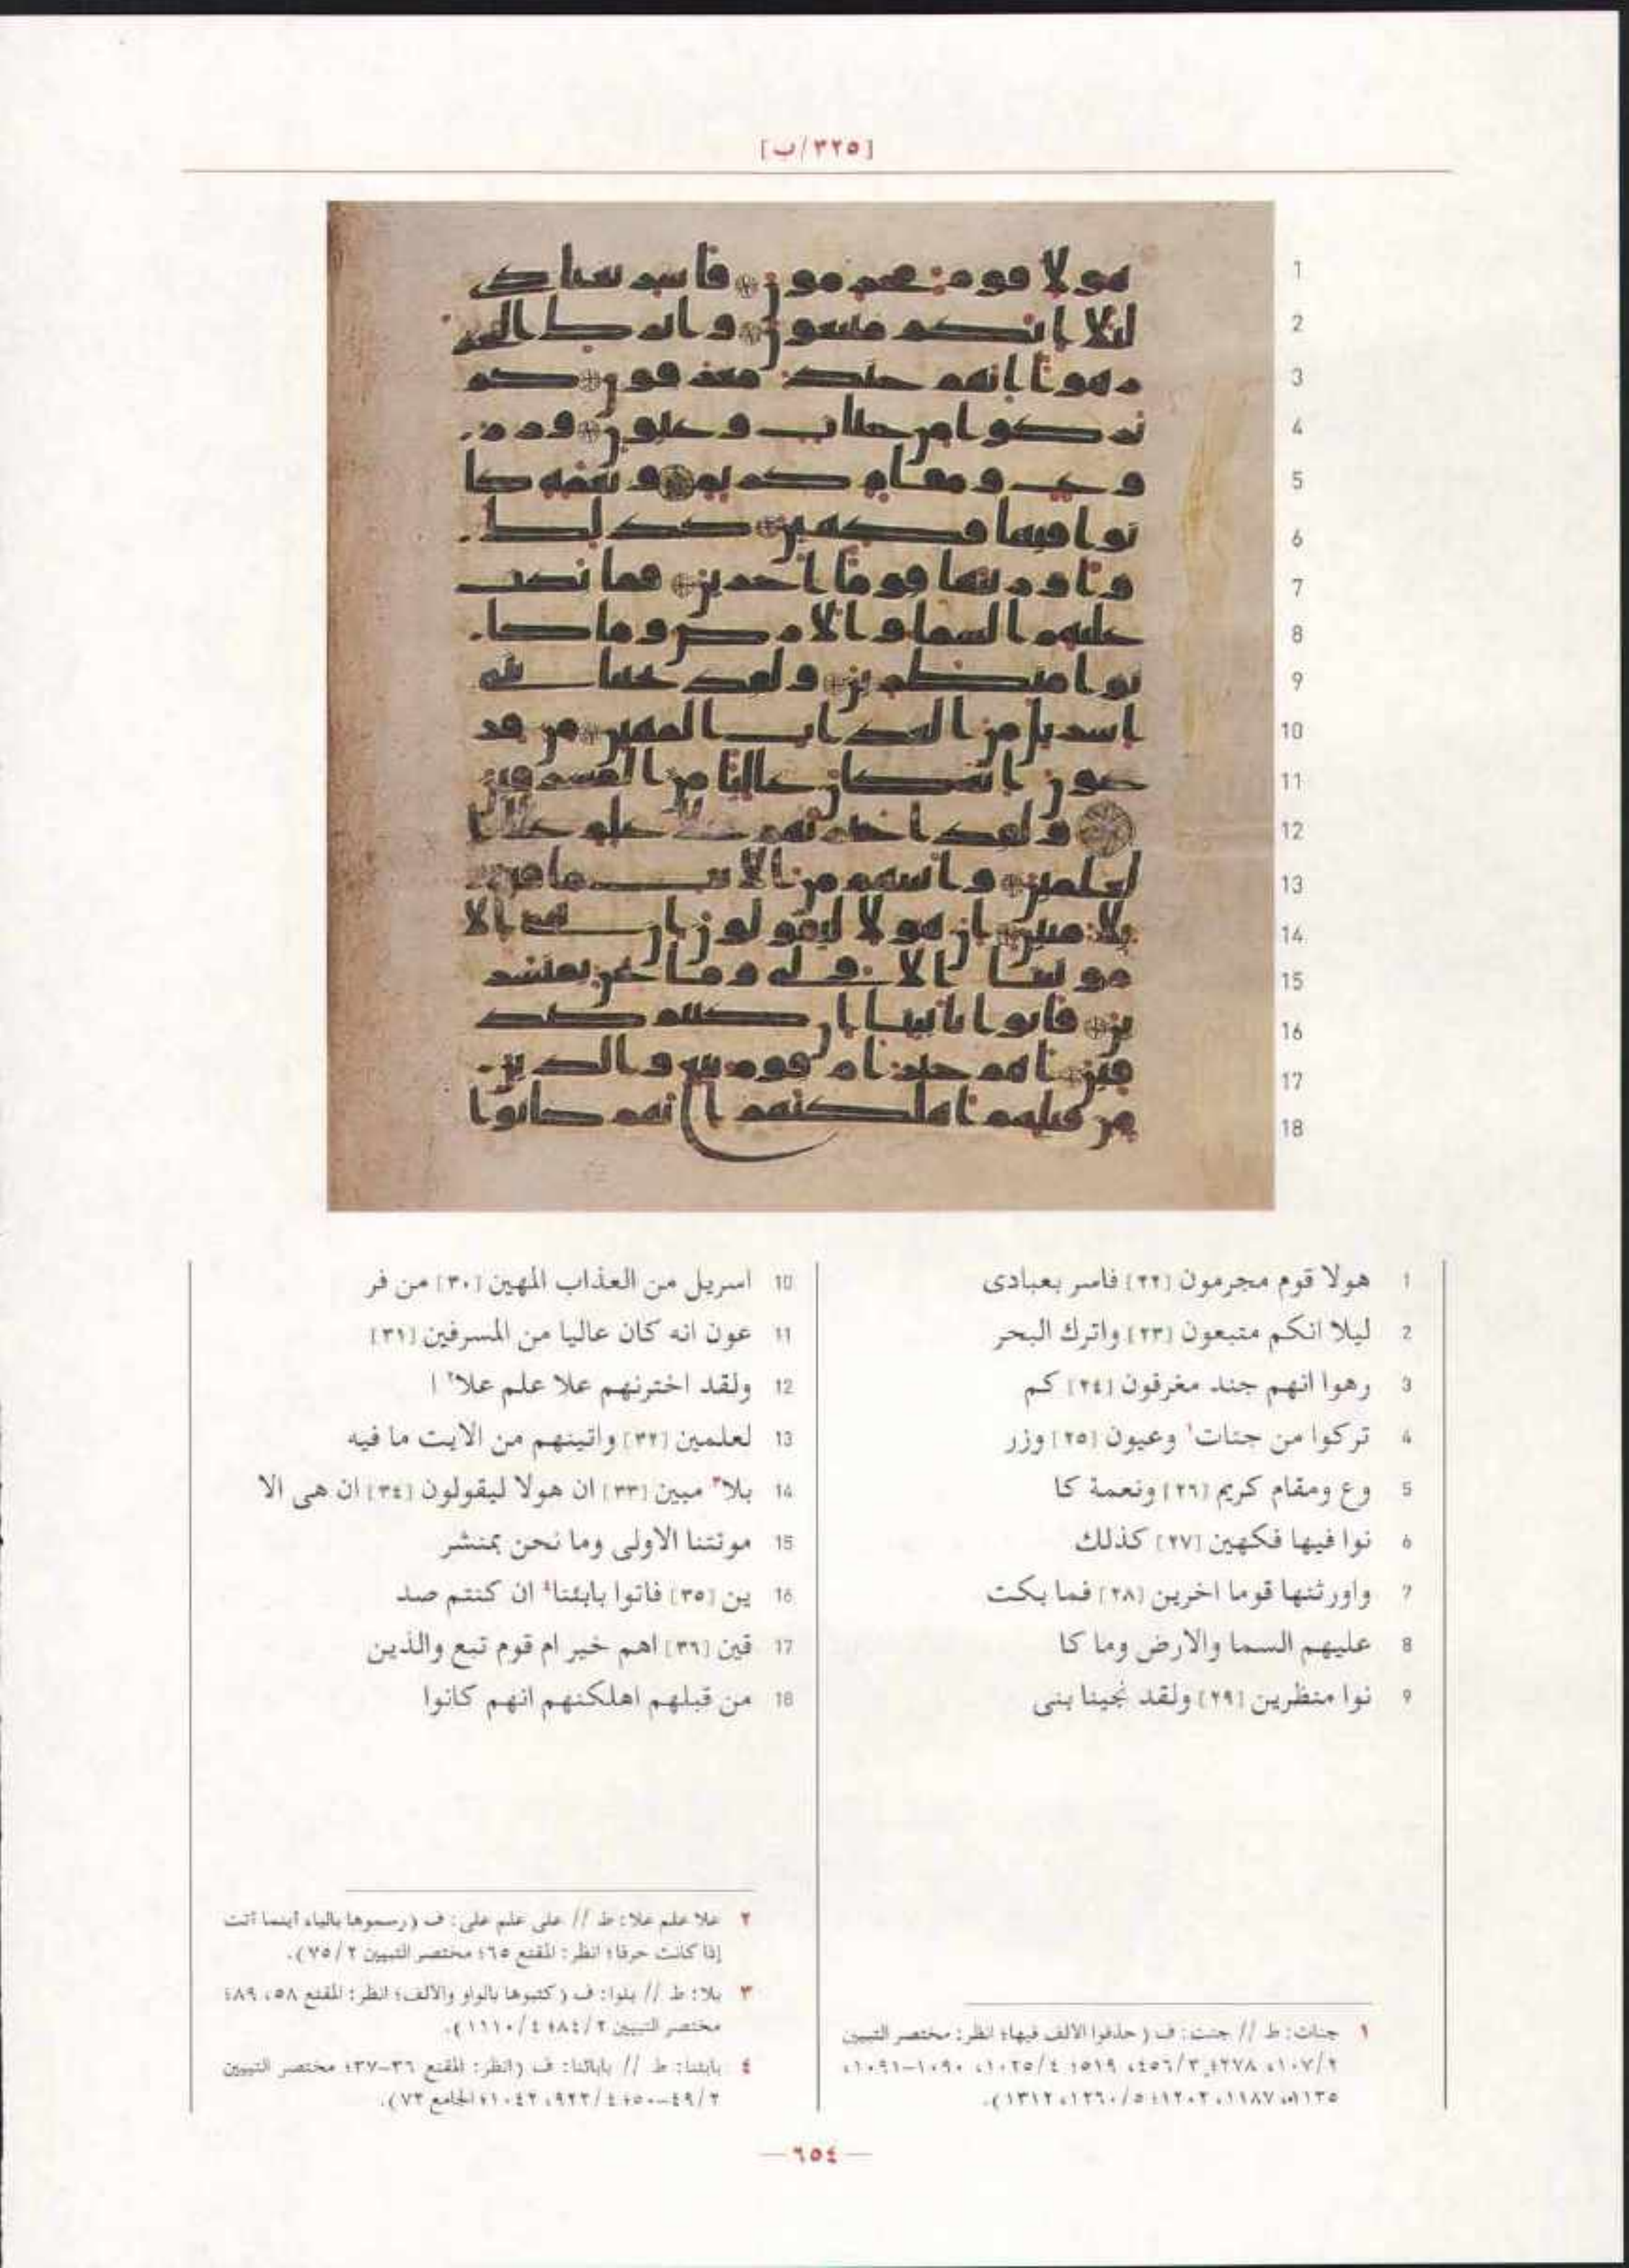 [٣٢٥/ب]
1 هولا قوم مجرمون [٢٢] فاسر بعبادى
2 ليلا انكم متبعون [٢٣] واترك البحر
3 رهوا انهم جند مغرقون [٢٤] كم
4 تركوا من جنات١ وعيون [٢٥] وزر
5 وع ومقام كريم [٢٦] ونعمة كا
6 نوا فيها فكهين [٢٧] كذلك
7 واورثنها قوما اخرين [٢٨] فما بكت
8 عليهم السما والارض وما كا
9 نوا منظرين [٢٩] ولقد نجينا بنى
10 اسريل من العذاب المهين [٣٠] من فر
11 عون انه كان عاليا من المسرفين [٣١]
12 ولقد اخترنهم علا علم علا٢ ا
13 لعلمين [٣٢] واتينهم من الايت ما فيه
14 بلا٣ مبين [٣٣] ان هولا ليقولون [٣٤] ان هى الا
15 موتتنا الاولى وما نحن بمنشر
16 ين [٣٥] فاتوا بابئنا٤ ان كنتم صد
17 قين [٣٦] اهم خير ام قوم تبع والذين
18 من قبلهم اهلكنهم انهم كانوا
١ جنات: ط // جنت: ف (حذفوا الالف فيها؛ انظر: مختصر التبيين
٢/١٠٧، ٢٧٨؛ ٣/٤٥٦، ٥١٩؛ ٤/١٠٢٥، ١٠٩٠-١٠٩١،
١١٣٥، ١١٨٧، ١٢٠٢؛ ٥/١٢٦٠، ١٣١٢).
٢ علا علم علا: ط // على علم على: ف (رسموها بالياء أينما أتت
إذا كانت حرفا؛ انظر: المقنع ٦٥؛ مختصر التبيين ٢/٧٥).
٣ بلا: ط // بلوا: ف (كتبوها بالواو والألف؛ انظر: المقنع ٥٨، ٨٩؛
مختصر التبيين ٢/٨٤؛ ٤/١١١٠).
٤ بابئنا: ط // بابائنا: ف (انظر: المقنع ٣٦-٣٧؛ مختصر التبيين
٢/٤٩-٥٠؛ ٤/٩٢٣، ١٠٤٢؛ الجامع ٧٣).
— ٦٥٤ —